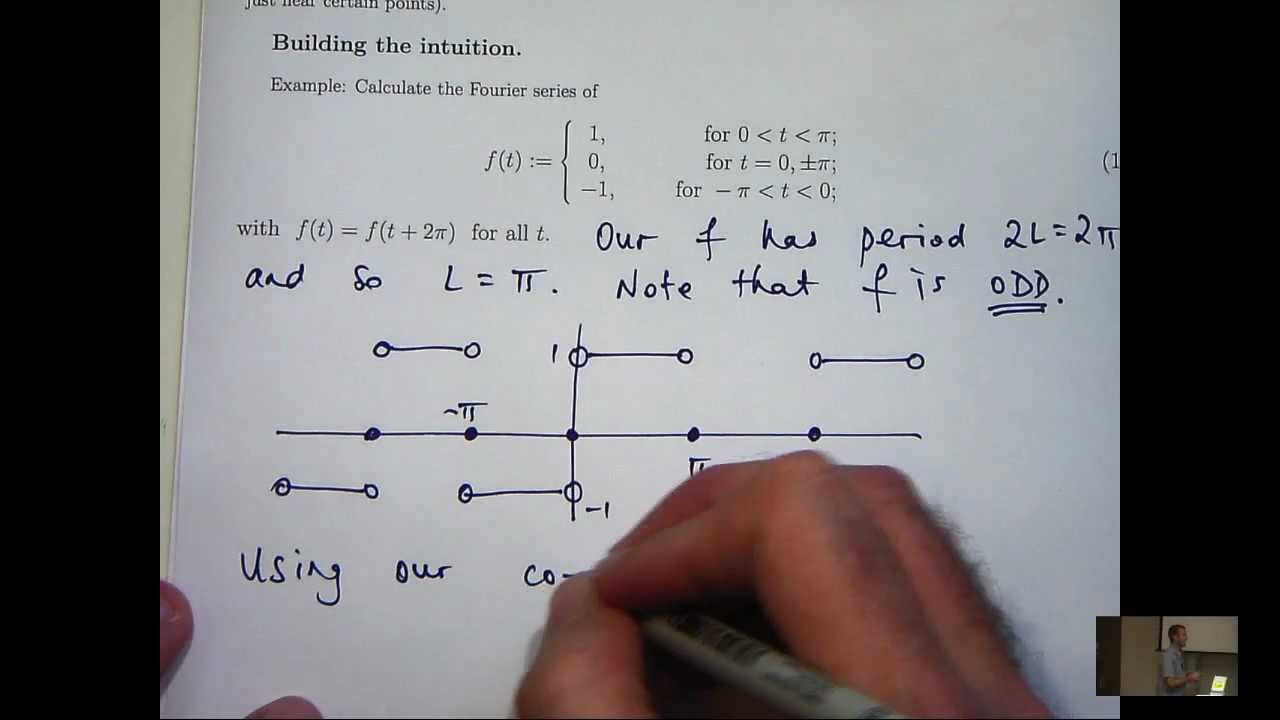 just near certain points).
Building the intuition.
Example: Calculate the Fourier series of
f(t) := { 1, for 0 < t < π;
0, for t = 0, ±π;
−1, for − π < t < 0;
(1
with f(t) = f(t + 2π) for all t. Our f has period 2L = 2π
and so L = π. Note that f is ODD.
1
-π
π
-1
Using our co